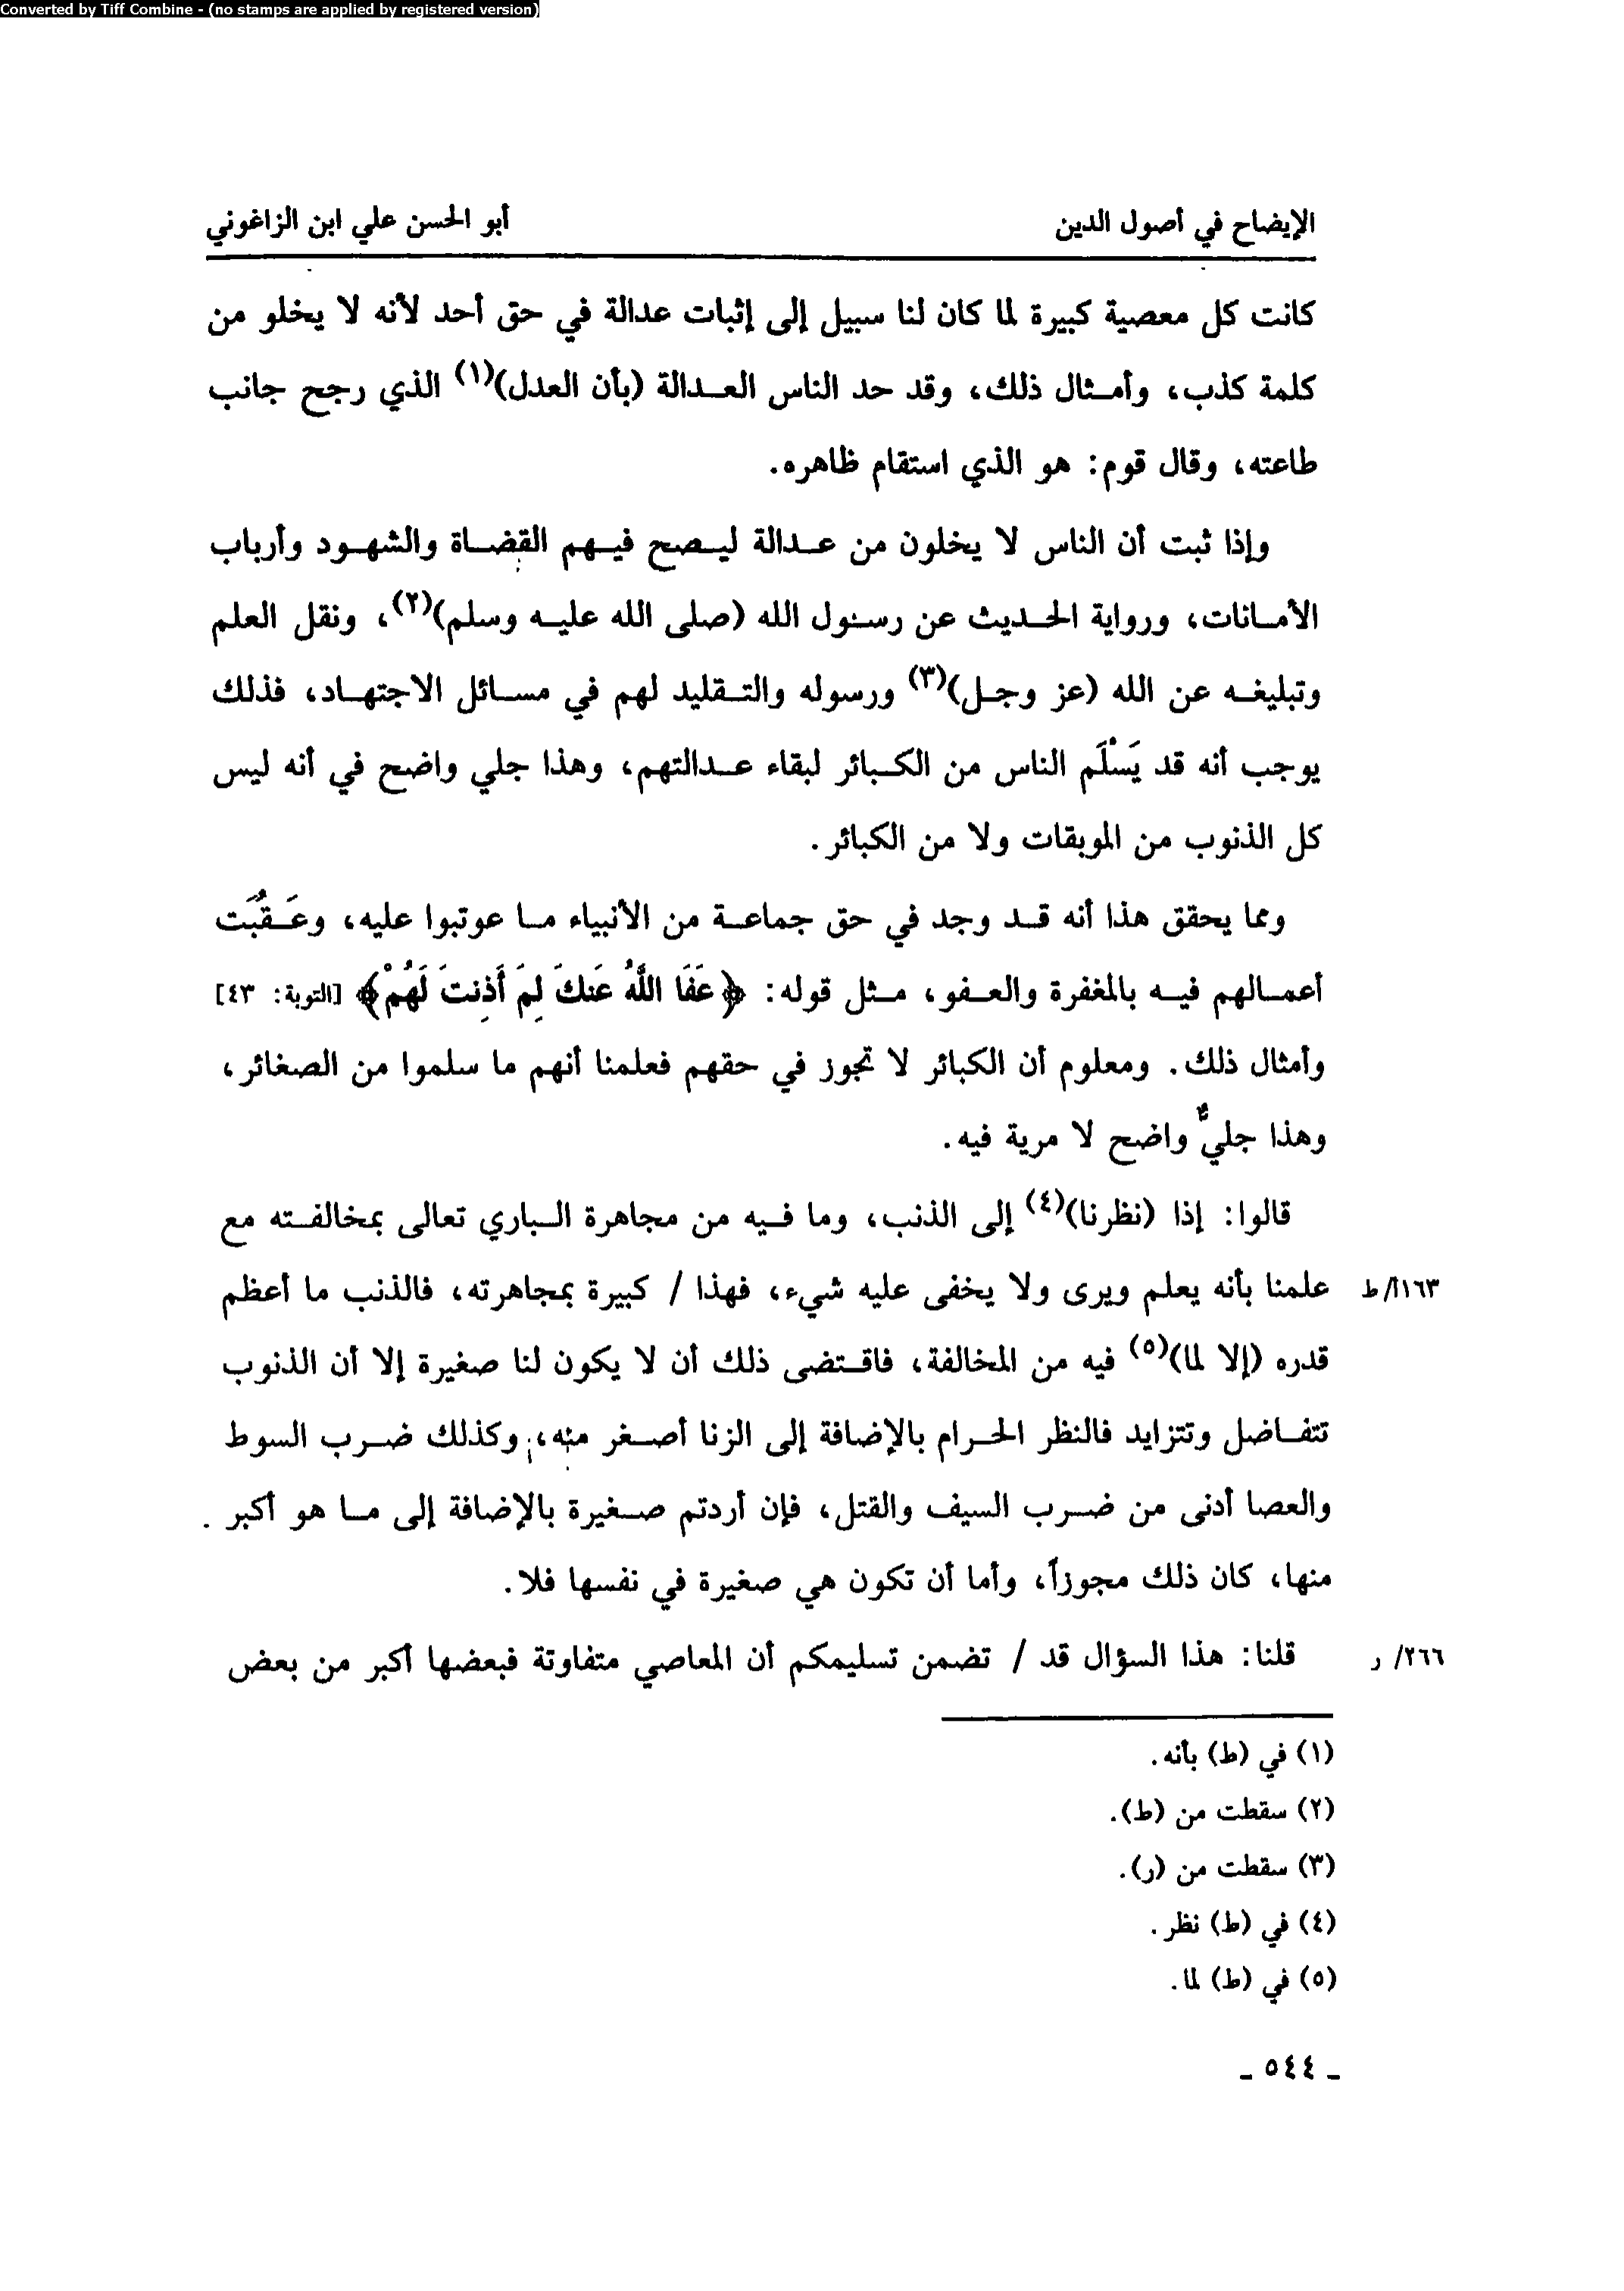 Converted by Tiff Combine - (no stamps are applied by registered version)
الإيضاح في أصول الدين أبو الحسن علي ابن الزاغوني
كانت كل معصية كبيرة لما كان لنا سبيل إلى إثبات عدالة في حق أحد لأنه لا يخلو من
كلمة كذب، وأمثال ذلك، وقد حد الناس العدالة (بأن العدل)(١) الذي رجح جانب
طاعته، وقال قوم: هو الذي استقام ظاهره.
وإذا ثبت أن الناس لا يخلون من عدالة ليصح فيهم القضاة والشهود وأرباب
الأمانات، ورواية الحديث عن رسول الله (صلى الله عليه وسلم)(٢)، ونقل العلم
وتبليغه عن الله (عز وجل)(٣) ورسوله والتقليد لهم في مسائل الاجتهاد، فذلك
يوجب أنه قد يَسْلَم الناس من الكبائر لبقاء عدالتهم، وهذا جلي واضح في أنه ليس
كل الذنوب من الموبقات ولا من الكبائر.
ومما يحقق هذا أنه قد وجد في حق جماعة من الأنبياء ما عوتبوا عليه، وعَقُبَت
أعمالهم فيه بالمغفرة والعفو، مثل قوله: ﴿عَفَا اللَّهُ عَنكَ لِمَ أَذِنتَ لَهُمْ﴾ [التوبة: ٤٣]
وأمثال ذلك. ومعلوم أن الكبائر لا تجوز في حقهم فعلمنا أنهم ما سلموا من الصغائر،
وهذا جليٌّ واضح لا مرية فيه.
قالوا: إذا (نظرنا)(٤) إلى الذنب، وما فيه من مجاهرة الباري تعالى بمخالفته مع
علمنا بأنه يعلم ويرى ولا يخفى عليه شيء، فهذا / كبيرة بمجاهرته، فالذنب ما أعظم ١٦٣أ/ط
قدره (إلا لما)(٥) فيه من المخالفة، فاقتضى ذلك أن لا يكون لنا صغيرة إلا أن الذنوب
تتفاضل وتتزايد فالنظر الحرام بالإضافة إلى الزنا أصغر منه، وكذلك ضرب السوط
والعصا أدنى من ضرب السيف والقتل، فإن أردتم صغيرة بالإضافة إلى ما هو أكبر
منها، كان ذلك مجوزاً، وأما أن تكون هي صغيرة في نفسها فلا.
قلنا: هذا السؤال قد / تضمن تسليمكم أن المعاصي متفاوتة فبعضها أكبر من بعض ٢٦٦/ ر
(١) في (ط) بأنه.
(٢) سقطت من (ط).
(٣) سقطت من (ر).
(٤) في (ط) نظر.
(٥) في (ط) لما.
- ٥٤٤ -